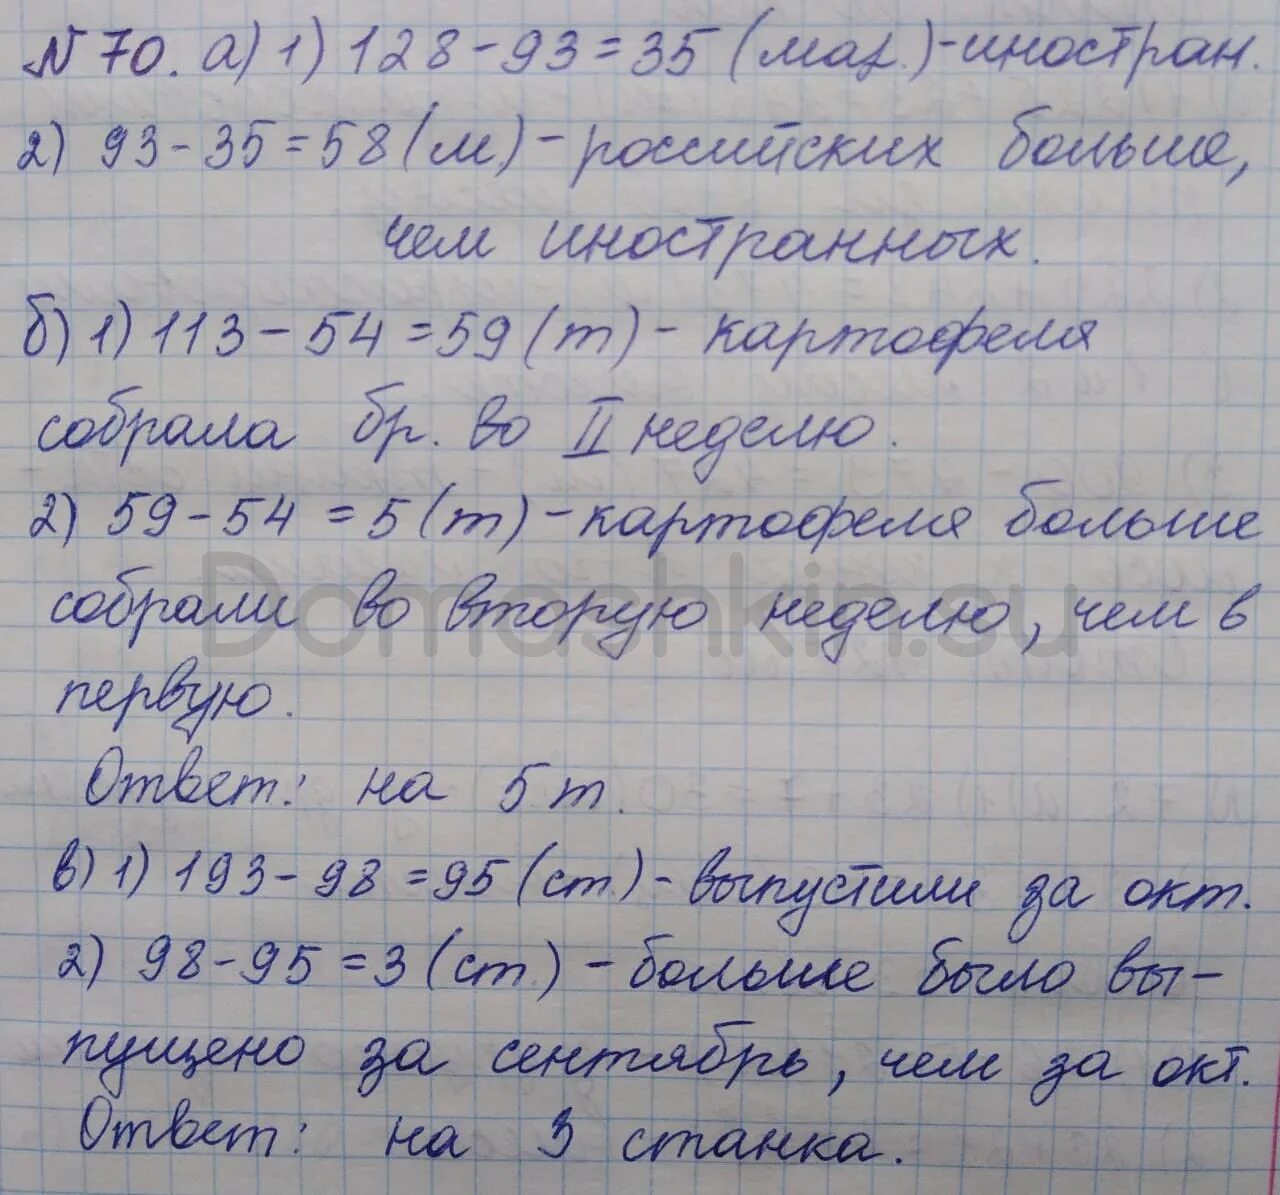 N 70. а) 1) 128 - 93 = 35 (маш.) - иностран.
2) 93 - 35 = 58 (м) - российских больше,
чем иностранных.
б) 1) 113 - 54 = 59 (т) - картофеля
собрала бр. во II неделю.
2) 59 - 54 = 5 (т) - картофеля больше
собрали во вторую неделю, чем в
первую.
Ответ: на 5 т.
в) 1) 193 - 98 = 95 (ст.) - выпустили за окт.
2) 98 - 95 = 3 (ст.) - больше было вы-
пущено за сентябрь, чем за окт.
Ответ: на 3 станка.
Domashkin.su